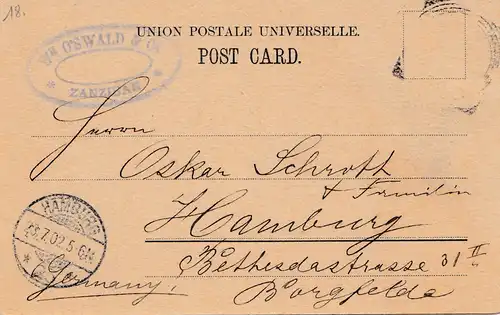 18.
UNION POSTALE UNIVERSELLE.
POST CARD.
Wm O'SWALD & Co
* ZANZIBAR *
Herrn
Oskar Schrott
& Familie
Hamburg
Bethesdastrasse 31 II
Borgfelde
Germany,
HAMBURG
28.7.02.5-6N.
*